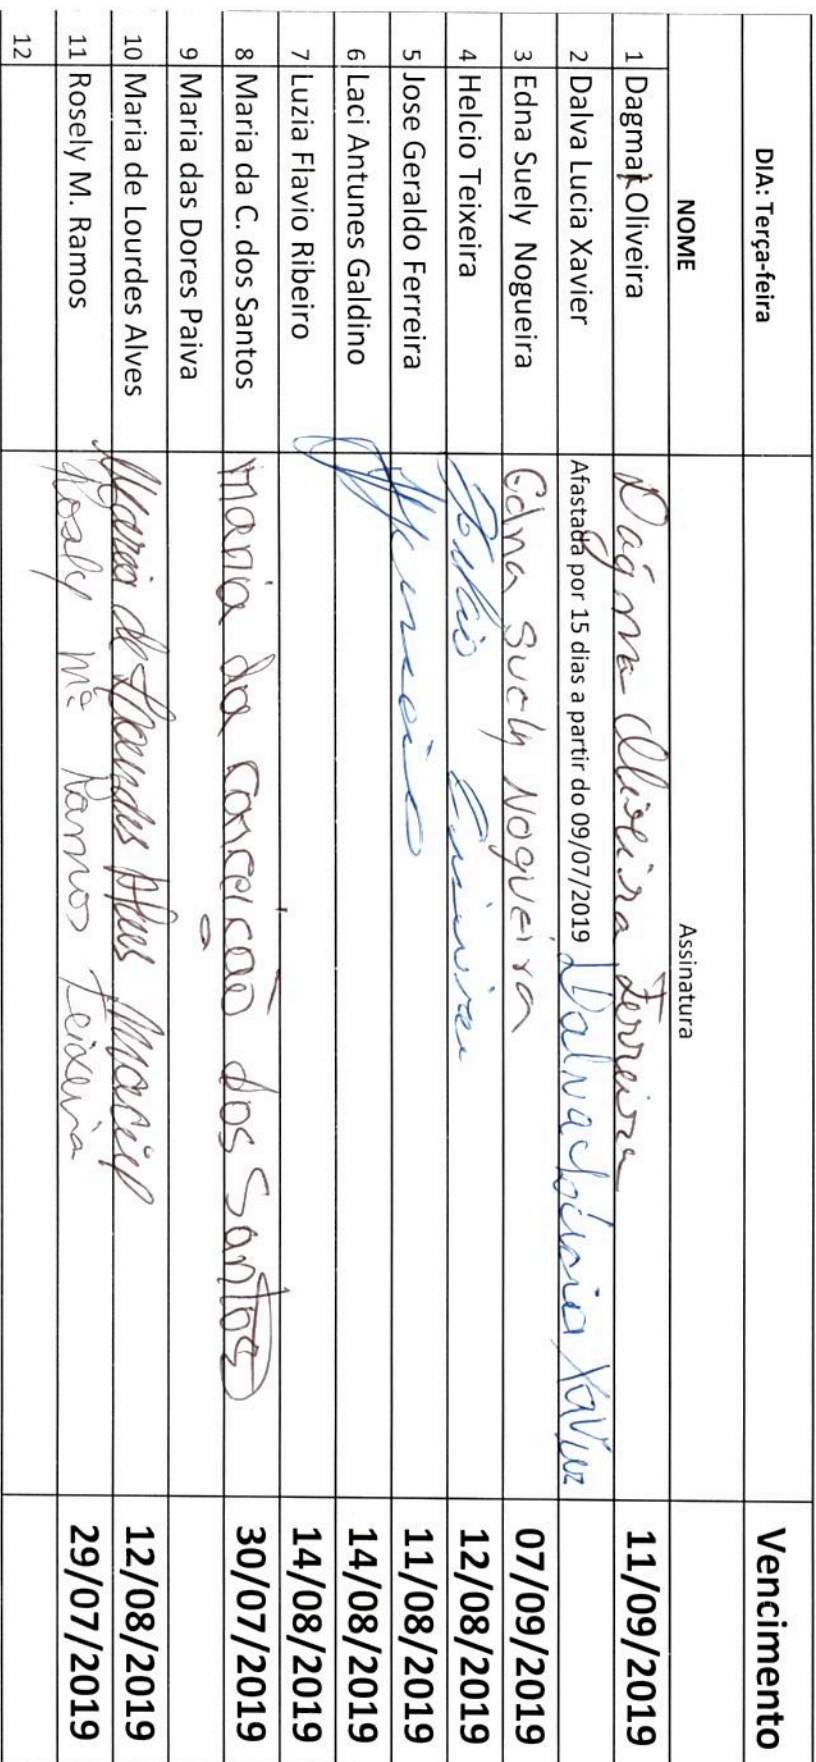 DIA: Terça-feira Vencimento
NOME Assinatura
1 Dagmar Oliveira Dagma Oliveira Ferreira 11/09/2019
2 Dalva Lucia Xavier Afastada por 15 dias a partir do 09/07/2019 Dalva Lúcia Xavier
3 Edna Suely Nogueira Edna Suely Nogueira 07/09/2019
4 Helcio Teixeira 12/08/2019
5 Jose Geraldo Ferreira 11/08/2019
6 Laci Antunes Galdino 14/08/2019
7 Luzia Flavio Ribeiro 14/08/2019
8 Maria da C. dos Santos maria da Conceição dos Santos 30/07/2019
9 Maria das Dores Paiva
10 Maria de Lourdes Alves Maria de Lourdes Alves Maciel 12/08/2019
11 Rosely M. Ramos Rosely Mª Ramos Teixeira 29/07/2019
12